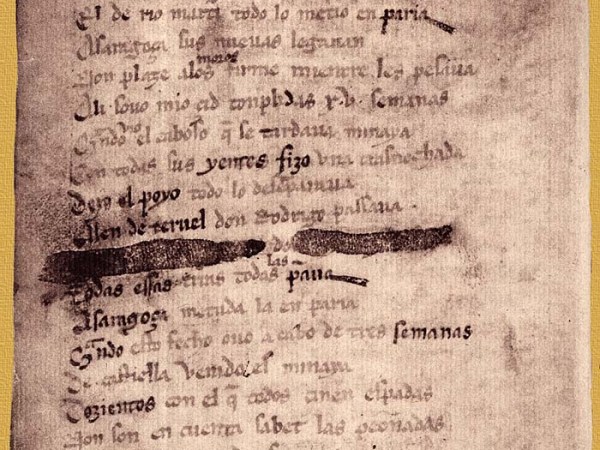 El de rio marti todo lo metio en paria
Asaragoça sus nueuas legauan
Non plaze alos moros firme mientre les pesaua
Ali souo mio çid conplidas xv. semanas
Quando vio el caboso q̃ se tardaua minaya
Con todas sus yentes fizo vna trasnochada
Dexo el poyo todo lo desenparaua
Allen de teruel don Rodrigo passaua
Todas essas tierras todas las paraua
Asaragoça metuda la en paria
Quando esto fecho ouo a cabo de tres semanas
De castiella venido es minaya
Dozientos con el q̃ todos çinen espadas
Non son en cuenta sabet las peonadas